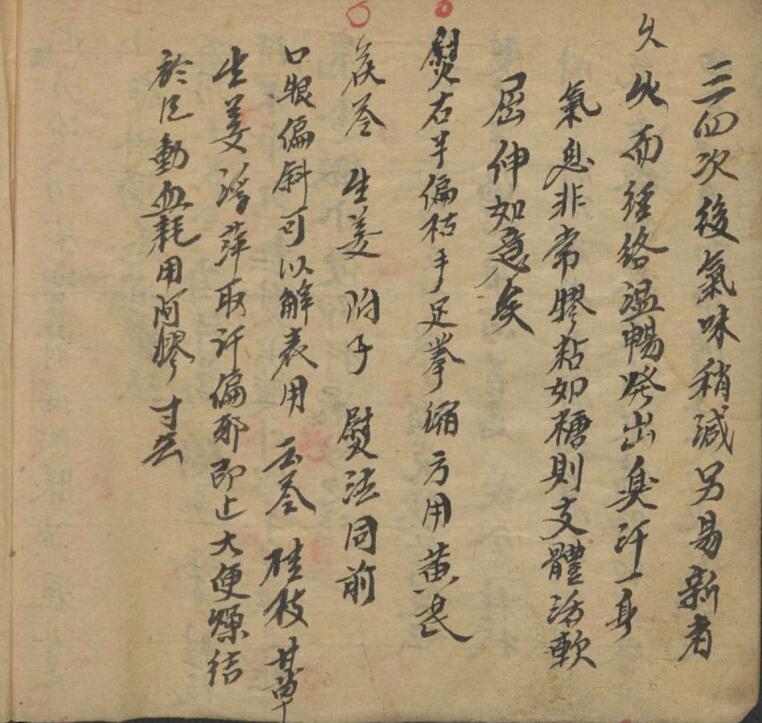 三四次後氣味稍減另易新者
久久而經絡溫暢發出臭汗一身
氣息非常膠粘如糖則支體活軟
屈伸如意矣
熨右半偏枯手足拳縮方用黃芪
茯苓 生姜 附子 熨法同前
口眼偏斜可以解表用 云苓 桂枝 甘草
生姜 浮萍取汗偏邪即止大便燥結
於风動血耗用阿膠 寸云